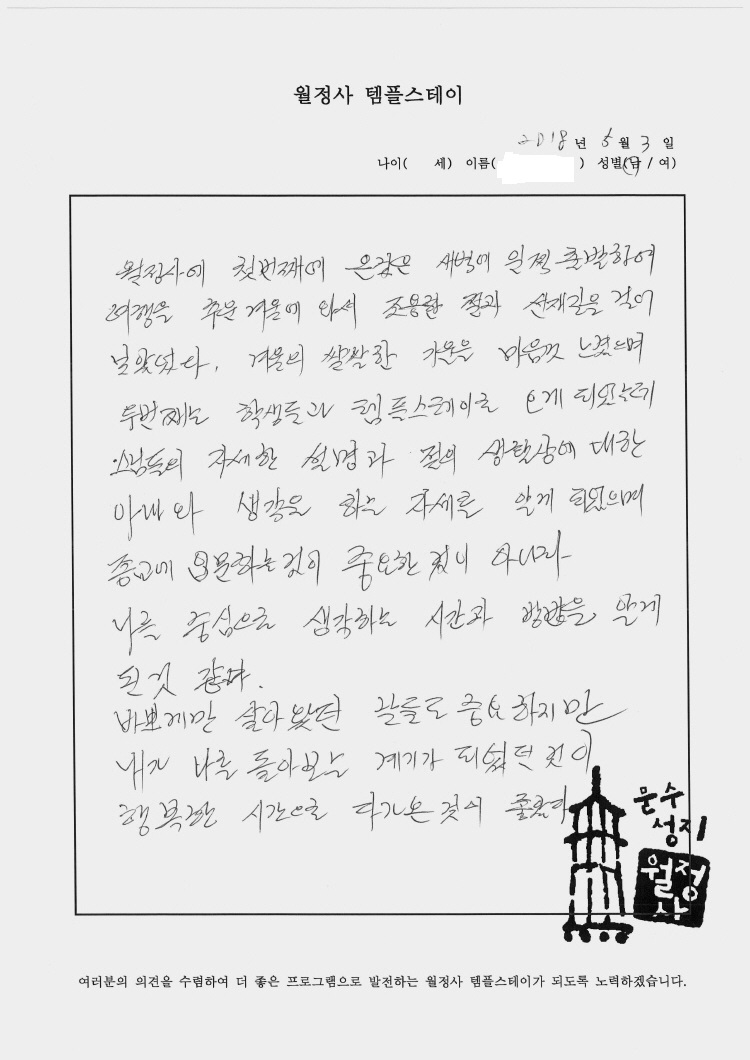 월정사 템플스테이
2018년 5월 3일
나이( 세) 이름( ) 성별(남/여)
월정사에 첫번째에 온것은 새벽에 일찍 출발하여
여행을 추운 겨울에 와서 조용한 절과 선재길을 걸어
보았었다. 겨울의 쌀쌀한 기운을 마음껏 느꼈으며
두번째는 학생들과 템플스테이로 오게 되었는데
스님들의 자세한 설명과 절의 생활상에 대한
안내와 생각을 하는 자세를 알게 되었으며
종교에 입문하는것이 중요한 것이 아니라
나를 중심으로 생각하는 시간과 방향을 알게
된것 같다.
바쁘게만 살아왔던 날들도 중요하지만
내가 나를 돌아보는 계기가 되었던 것이
행복한 시간으로 다가온것이 좋았다
문수
성지
월정
사
여러분의 의견을 수렴하여 더 좋은 프로그램으로 발전하는 월정사 템플스테이가 되도록 노력하겠습니다.